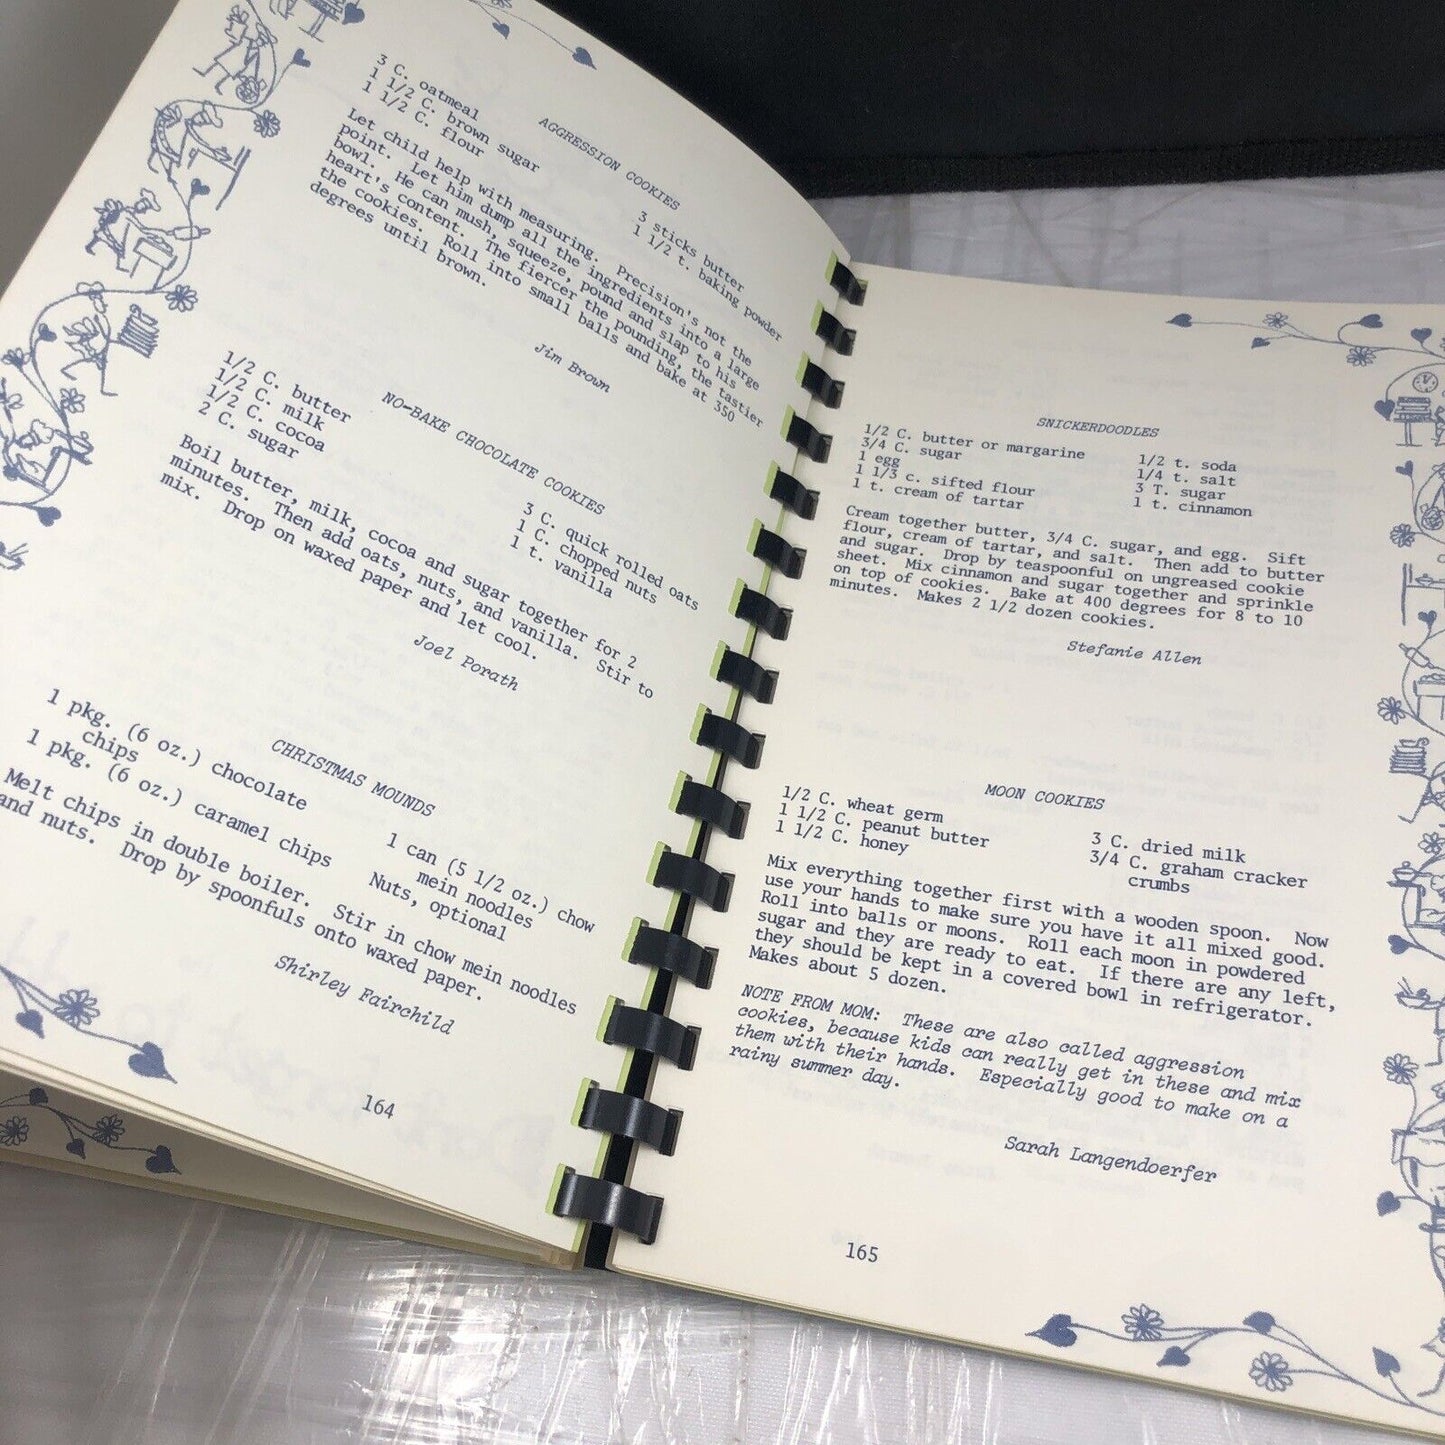 AGGRESSION COOKIES
3 C. oatmeal
1 1/2 C. brown sugar
1 1/2 C. flour
3 sticks butter
1 1/2 t. baking powder
Let child help with measuring. Precision's not the
point. Let him dump all the ingredients into a large
bowl. He can mush, squeeze, pound and slap to his
heart's content. The fiercer the pounding, the tastier
the cookies. Roll into small balls and bake at 350
degrees until brown.
Jim Brown
NO-BAKE CHOCOLATE COOKIES
1/2 C. butter
1/2 C. milk
1/2 C. cocoa
2 C. sugar
3 C. quick rolled oats
1 C. chopped nuts
1 t. vanilla
Boil butter, milk, cocoa and sugar together for 2
minutes. Then add oats, nuts, and vanilla. Stir to
mix. Drop on waxed paper and let cool.
Joel Porath
CHRISTMAS MOUNDS
1 pkg. (6 oz.) chocolate
chips
1 pkg. (6 oz.) caramel chips
1 can (5 1/2 oz.) chow
mein noodles
Nuts, optional
Melt chips in double boiler. Stir in chow mein noodles
and nuts. Drop by spoonfuls onto waxed paper.
Shirley Fairchild
164
SNICKERDOODLES
1/2 C. butter or margarine
3/4 C. sugar
1 egg
1 1/3 c. sifted flour
1 t. cream of tartar
1/2 t. soda
1/4 t. salt
3 T. sugar
1 t. cinnamon
Cream together butter, 3/4 C. sugar, and egg. Sift
flour, cream of tartar, and salt. Then add to butter
and sugar. Drop by teaspoonful on ungreased cookie
sheet. Mix cinnamon and sugar together and sprinkle
on top of cookies. Bake at 400 degrees for 8 to 10
minutes. Makes 2 1/2 dozen cookies.
Stefanie Allen
MOON COOKIES
1/2 C. wheat germ
1 1/2 C. peanut butter
1 1/2 C. honey
3 C. dried milk
3/4 C. graham cracker
crumbs
Mix everything together first with a wooden spoon. Now
use your hands to make sure you have it all mixed good.
Roll into balls or moons. Roll each moon in powdered
sugar and they are ready to eat. If there are any left,
they should be kept in a covered bowl in refrigerator.
Makes about 5 dozen.
NOTE FROM MOM: These are also called aggression
cookies, because kids can really get in these and mix
them with their hands. Especially good to make on a
rainy summer day.
Sarah Langendoerfer
165